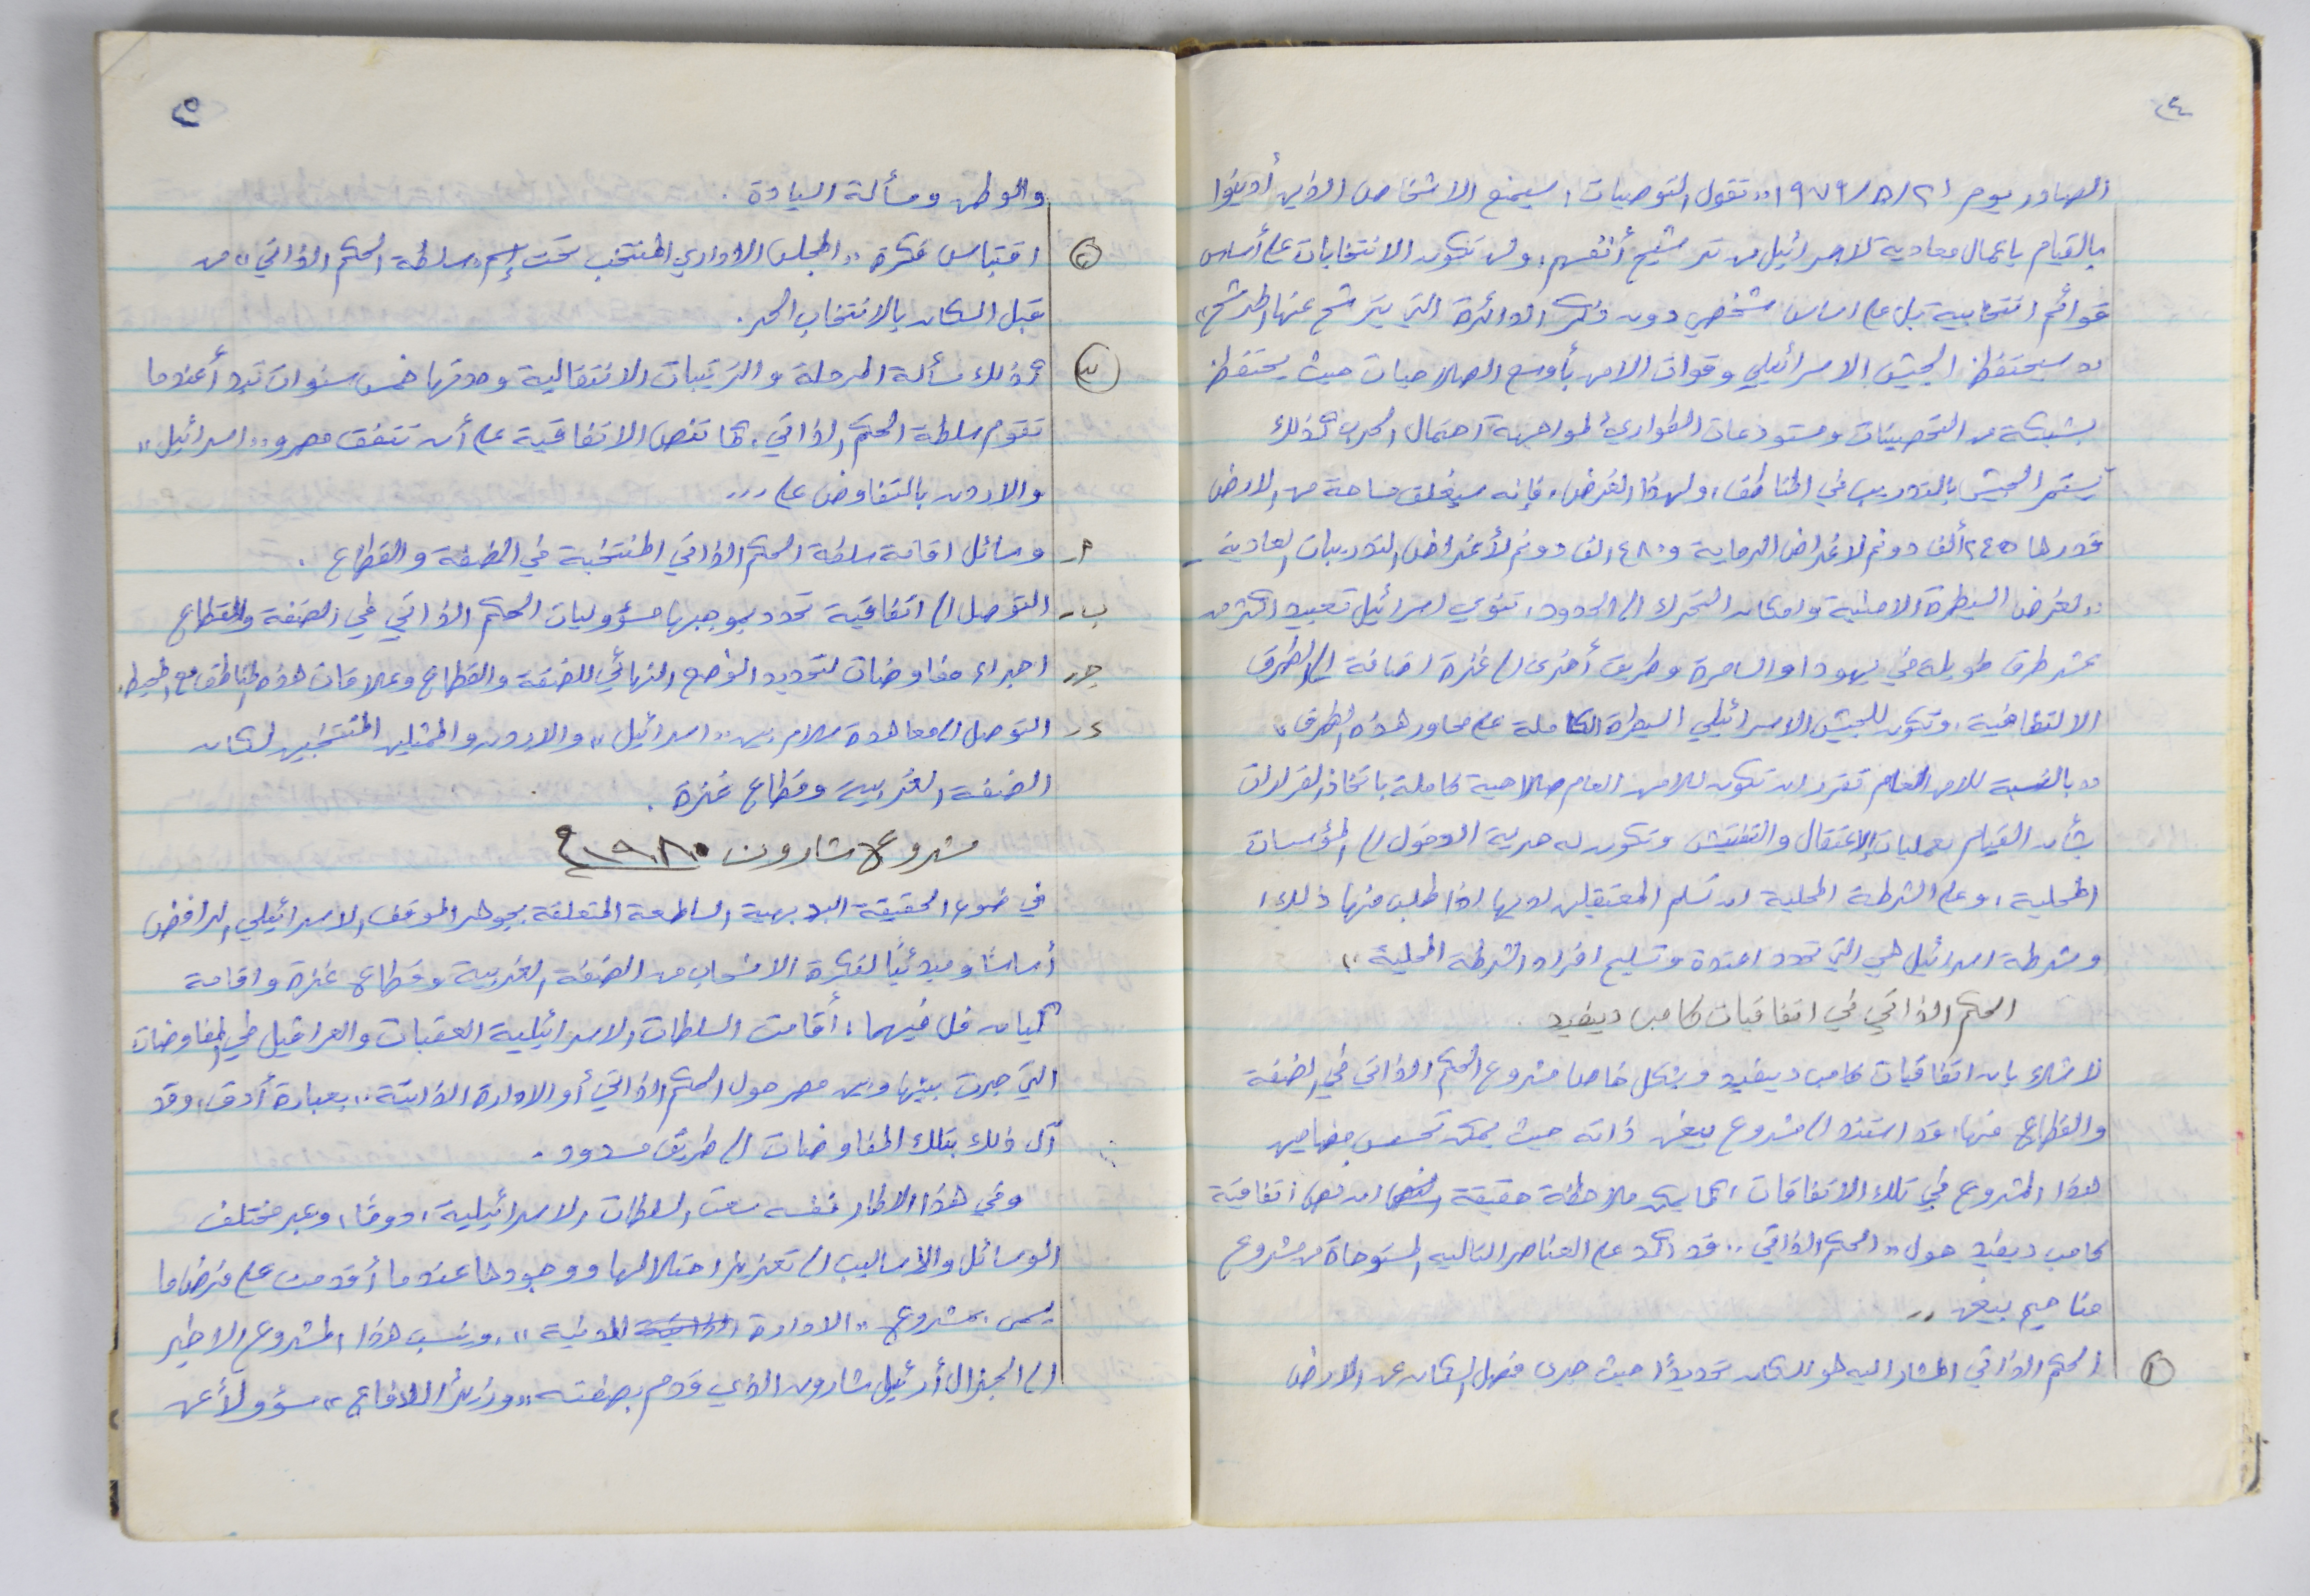 ٢٤
الصادر يوم ٢١/٥/١٩٧٩ "تقول التوصيات: سيمنع الاشخاص الذين أدينوا
بالقيام باعمال معادية لاسرائيل من ترشيح أنفسهم، ولن تكون الانتخابات على أساس
قوائم انتخابية بل على اساس شخصي دون ذكر الدائرة التي يترشح عنها المرشح"
"سيحتفظ الجيش الاسرائيلي وقوات الامن بأوسع الصلاحيات حيث يحتفظ
بشبكة من التحصينات ومستودعات الطوارئ لمواجهة احتمال الحرب كذلك
يستمر الجيش بالتدريب في المناطق، ولهذا الغرض، فإنه سيغلق مساحة من الارض
قدرها ٢٤٥ ألف دونم لاغراض الرماية و ٤٨٠ الف دونم لأغراض التدريبات العادية -
"لغرض السيطرة الامنية وامكان التحرك الى الحدود، تنوي اسرائيل تعبيد اكثر من
عشر طرق طويلة في يهودا والسامرة وطريق أخرى الى غزة اضافة الى الطرق
الالتفافية، وتكون للجيش الاسرائيلي السيطرة الكاملة على محاور هذه الطرق"
"بالنسبة للامن العام تقرر ان تكون للامن العام صلاحية كاملة باتخاذ القرارات
بشأن القيام بعمليات الاعتقال والتفتيش وتكون له حرية الدخول الى المؤسسات
المحلية، وعلى الشرطة المحلية ان تسلم المعتقلين لديها اذا طلب منها ذلك،
وشرطة اسرائيل هي التي تحدد اعتدة وتسليح افراد الشرطة المحلية"،
الحكم الذاتي في اتفاقيات كامب ديفيد
لا شك بان اتفاقيات كامب ديفيد وبشكل خاص مشروع الحكم الذاتي في الضفة
والقطاع منها، قد استند الى مشروع بيغن ذاته حيث يمكن تحسس مضامين
هذا المشروع في تلك الاتفاقات، كما يمكن ملاحظة حقيقة ان نص اتفاقية
كامب ديفيد حول "الحكم الذاتي" قد اكد على العناصر التاليه المستوحاة من مشروع
مناحيم بيغن ..
① الحكم الذاتي المشار اليه هو للسكان تحديدًا حيث جرى فصل السكان عن الارض
٢٥
والوطن ومسألة السيادة .
② اقتباس فكرة "المجلس الاداري المنتخب تحت إسم "سلطة الحكم الذاتي" من
قبل السكان بالانتخاب الحر.
③ كذلك مسألة المرحلة والترتيبات الانتقالية ومدتها خمس سنوات تبدأ عندما
تقوم سلطة الحكم الذاتي، كما تنص الاتفاقية على أن تتفق مصر و "اسرائيل"
والاردن بالتفاوض على ...
أ- وسائل اقامة سلطة الحكم الذاتي المنتخبة في الضفة والقطاع .
ب- التوصل الى اتفاقية تحدد بموجبها مسؤوليات الحكم الذاتي في الضفة والقطاع
جـ- اجراء مفاوضات لتحديد الوضع النهائي للضفة والقطاع وعلاقات هذه المناطق مع المحيط.
د- التوصل الى معاهدة سلام بين "اسرائيل" والاردن والممثلين المنتخبين لسكان
الضفة الغربية وقطاع غزة .
مشروع شارون ١٩٨٠م
في ضوء الحقيقة البديهية الساطعة المتعلقة بجوهر الموقف الاسرائيلي الرافض
أساسًا ومبدئيًا لفكرة الانسحاب من الضفة الغربية وقطاع غزة واقامة
كيان فل فيهما، أقامت السلطات الاسرائيلية العقبات والعراقيل في المفاوضات
التي جرت بينها وبين مصر حول الحكم الذاتي أو الادارة الذاتية" بعبارة أدق، وقد
آل ذلك بتلك المفاوضات الى طريق مسدود .
وفي هذا الاطار نفسه سعت السلطات الاسرائيلية، دومًا، وعبر مختلف
الوسائل والأساليب الى تعزيز احتلالها ووجودها عندما أقدمت على فرض ما
يسمى بمشروع "الادارة المدنية"، وينسب هذا المشروع الاخير
الى الجنرال أرئيل شارون الذي قدم بصفته "وزيرًا للدفاع" مسؤولاً عن